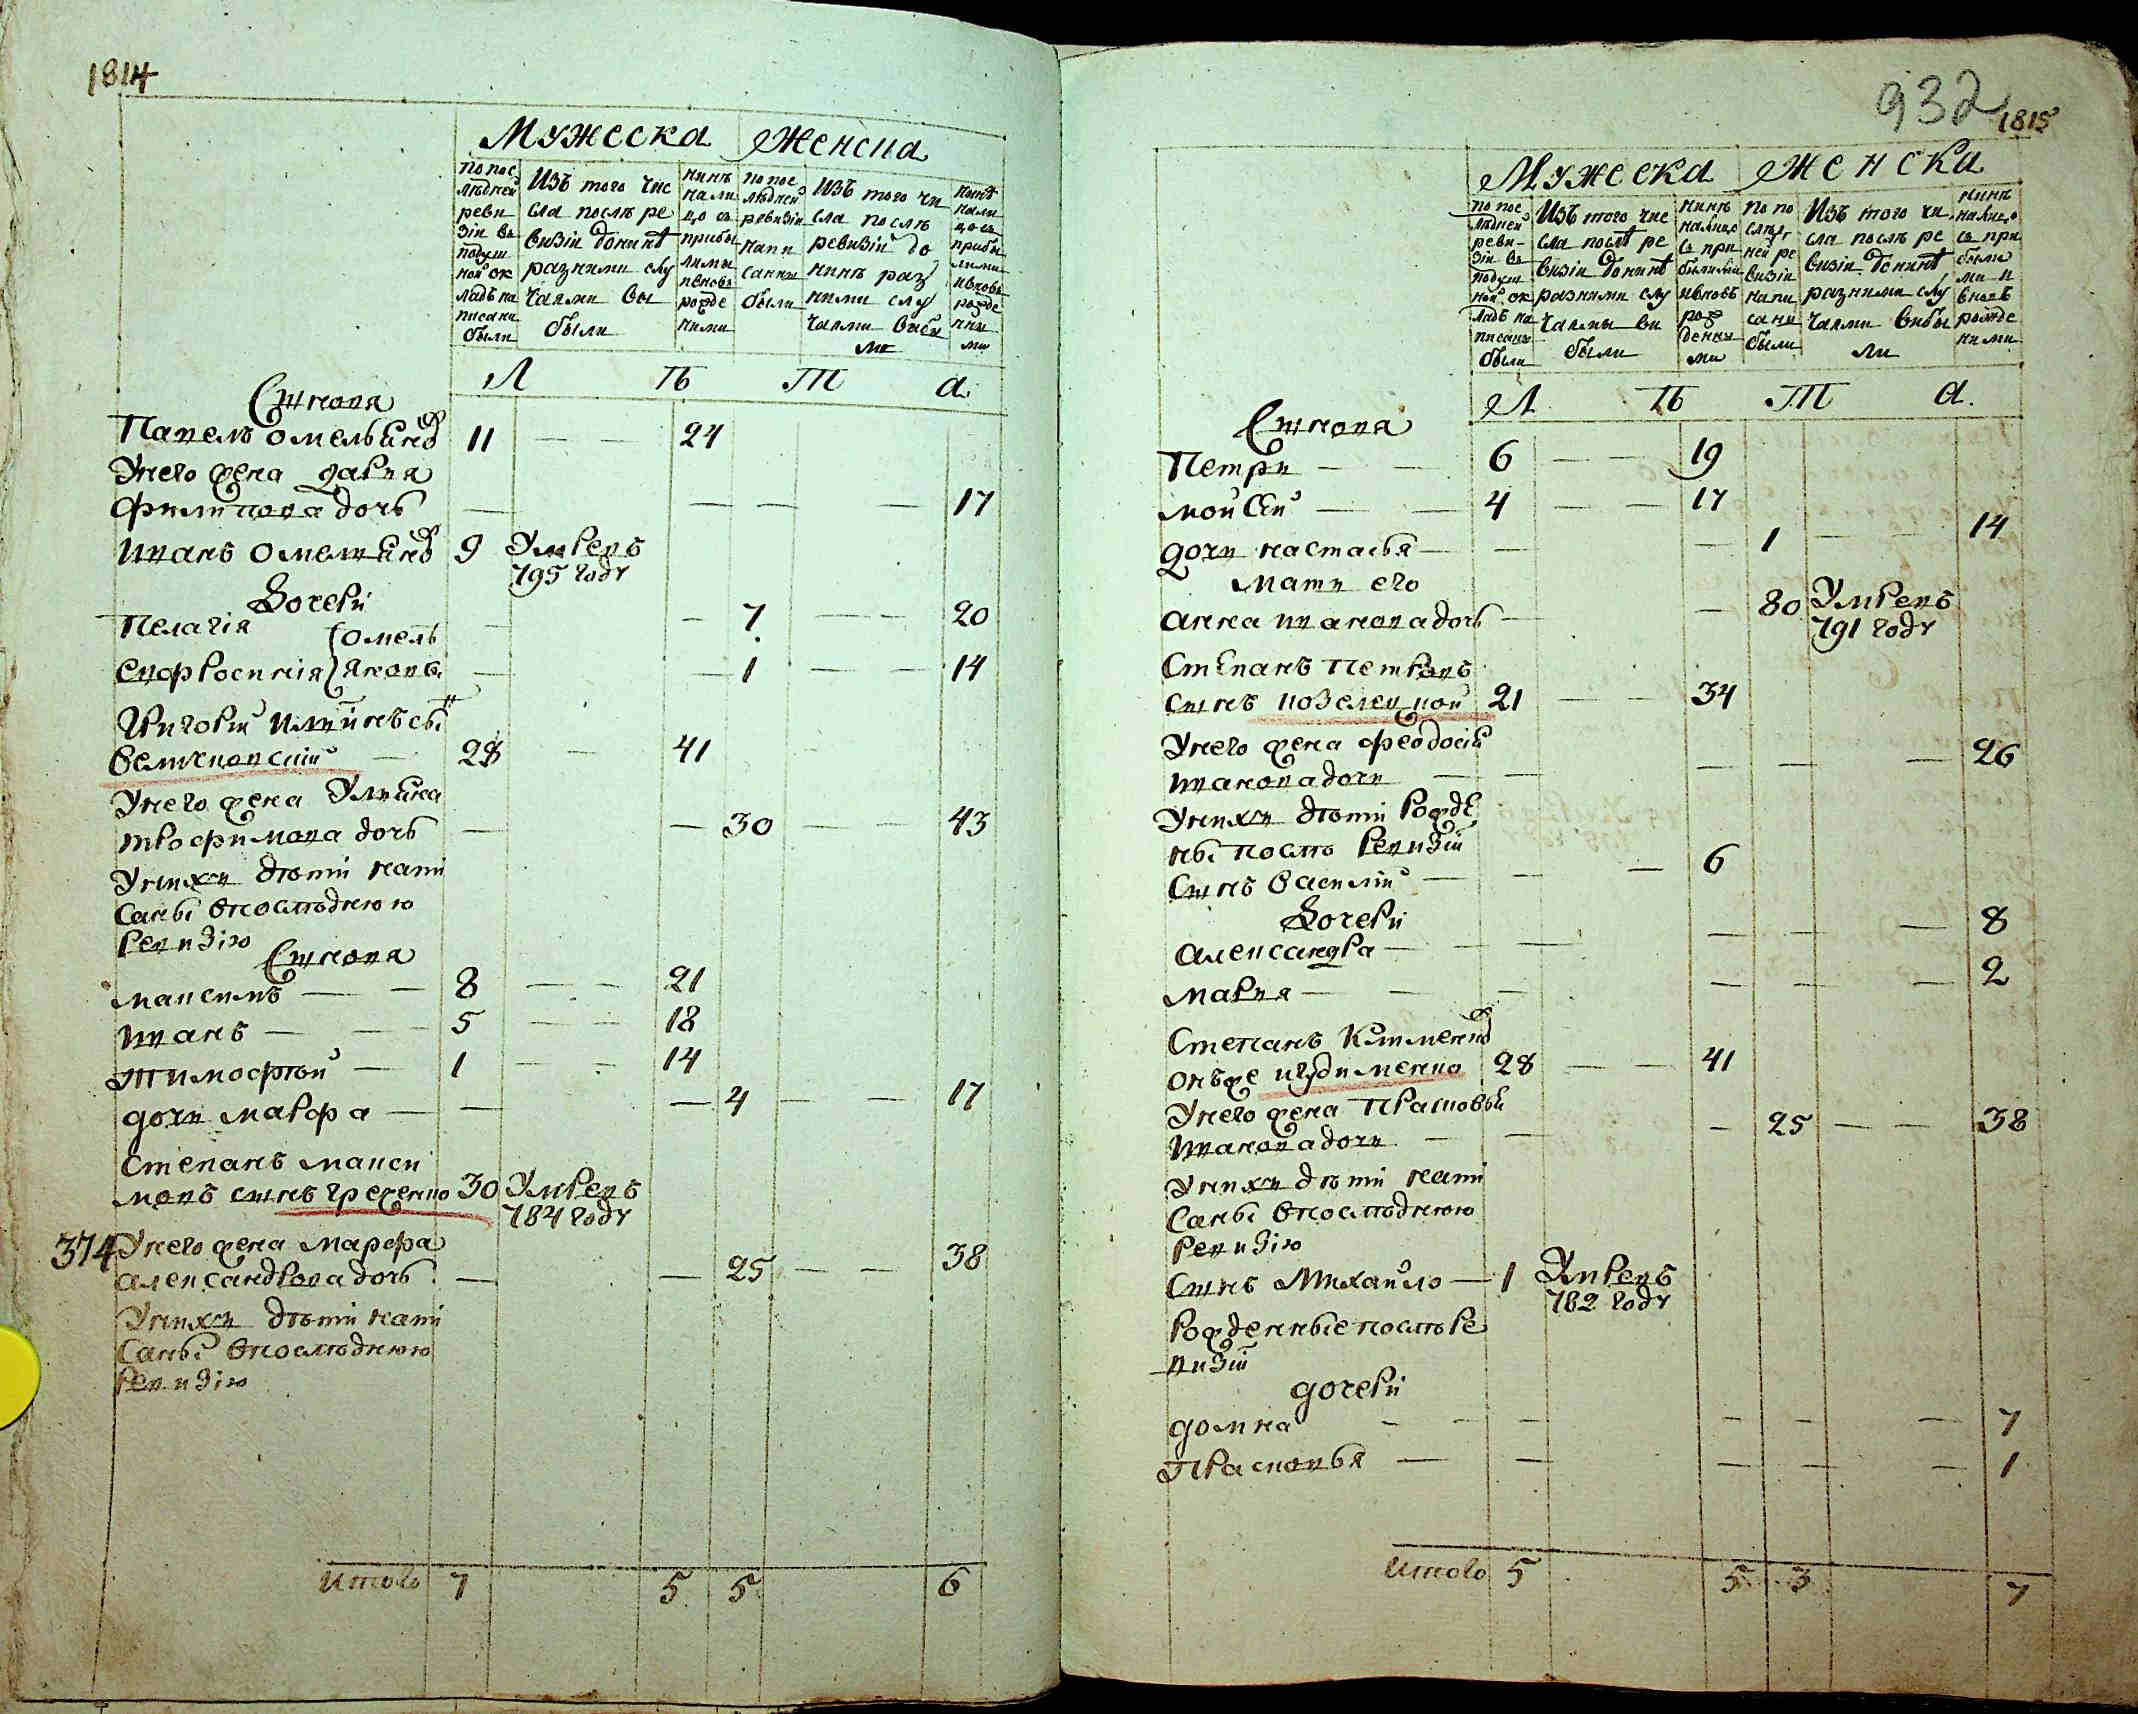 1814
Мужеска Женска
по пос
лѣдней
реви
зіи въ
подуш
ной ок
ладъ на
писани
были
Изъ того чис
сла послѣ ре
визіи донинѣ
разними слу
чаями вы
были
нинѣ
нали
цо съ
прибы
лими
ивновъ
рожде
ними
по пос
лѣдней
ревизіи
напи
сани
были
Изъ того чи
сла послѣ
ревизіи до
нинѣ раз
ними слу
чаями выбы
ли
нинѣ
нали
цо съ
прибы
лими
ивновъ
рожде
ни
ми
Л Ѣ Т а
Сыновя
Павелъ Омельянов 11 — — 24
Унего жена дария
Филипова дочь — — — — 17
Иванъ Омельянов 9 Умревъ
795 году
Дочери
Пелагія Омель — — 7 — — 20
Евфросинія яновы — — 1 — — 14
Григорій Илиинъ сы
Величковскій — 28 — 41
Унего жена Улияна
трофимова дочь — — 30 — — 43
Унихъ дѣти напи
саны впослѣднюю
ревизію
Сыновя
Максимъ — — 8 — — 21
Иванъ — — 5 — — 18
Тимофѣй — 1 — — 14
дочи марфа — — — 4 — — 17
Степанъ макси
мовъ сынъ греченко 30 Умревъ
784 году
374 Унего жена Марфа
александрова дочь — — 25 — — 38
Унихъ дѣти напи
саны впослѣднюю
ревизію
Итого 7 5 5 6
932
1815
Мужеска Женска
по пос
лѣдней
реви-
зіи въ
подуш
ной ок
ладъ на
писани
были
Изъ того чис
сла послѣ ре
визіи донинѣ
разними слу
чаями ви
были
нинѣ
налицо
съ при
былими
ивновъ
рож
денни
ми
по по
слѣд
ней ре
визіи
напи
сани
были
Изъ того чи
сла послѣ ре
визіи донинѣ
разними слу
чаями вибы
ли
нинѣ
налицо
съ при
были
ми и
вновъ
рожде
ними
Л Ѣ Т а.
Сыновя
Петри — — 6 — — 19
мойсей — — 4 — — 17
дочи настасья — — — 1 — — 14
мати его
анна иванова дочь — — 80 Умревъ
791 году
Степанъ Петровъ
сынъ козелецкой 21 — — 34
Унего жена феодосия
иванова дочи — — — — — 26
Унихъ дѣти рожде
ны послѣ ревизіи
Сынъ Василій — — — 6
Дочери
александра — — — — — — 8
мария — — — — — — 2
Степанъ Климентов
онъже игудименко 28 — — 41
Унего жена Прасковья
иванова дочи — — — 25 — — 38
Унихъ дѣти напи
саны впослѣднюю
ревизію
Сынъ Михайло — 1 Умревъ
782 году
Рожденные послѣ ре
визіи
дочери
домна — — — — — — 7
Прасковья — — — — — 1
Итого 5 5 3 7